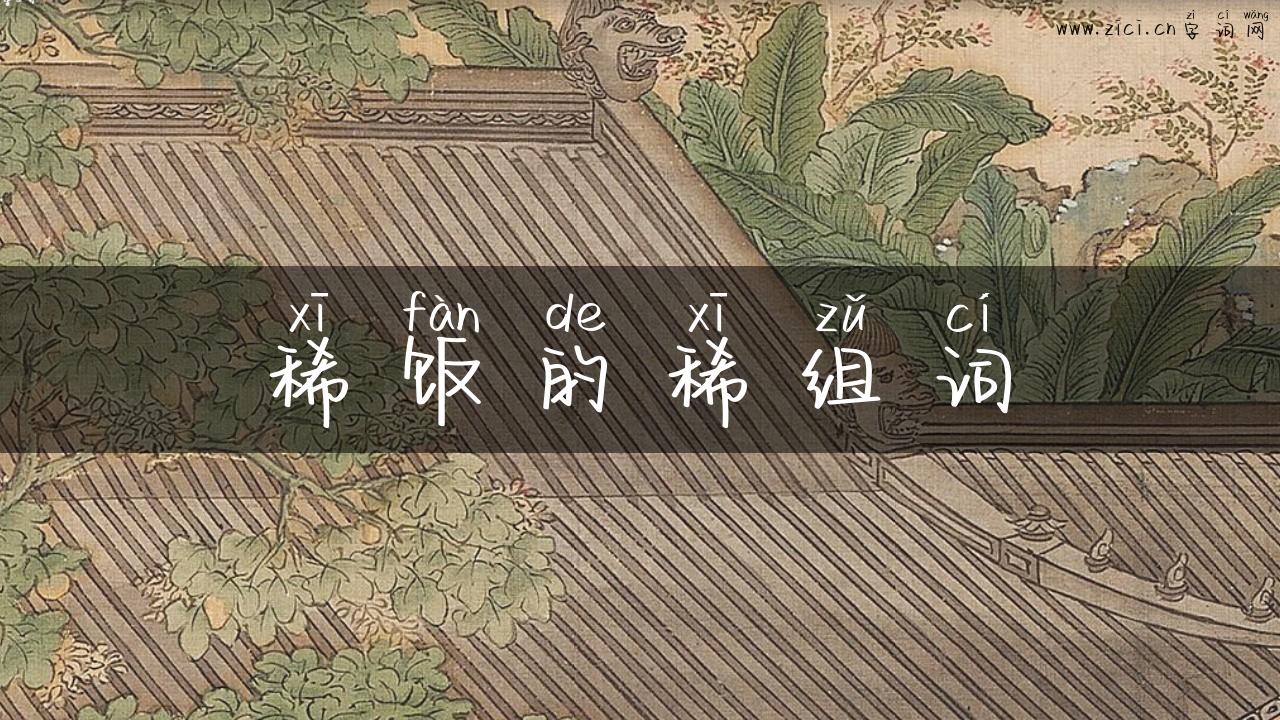 zì cí wǎng
www.zici.cn 字 词 网
xī fàn de xī zǔ cí
稀 饭 的 稀 组 词